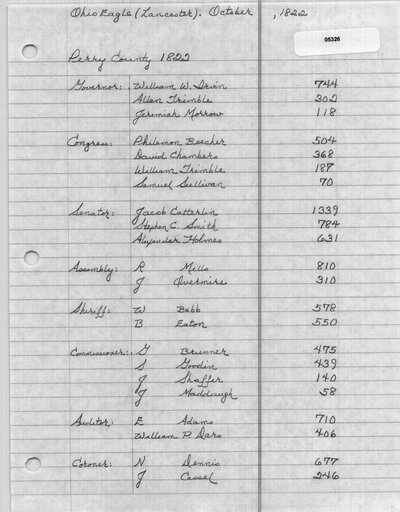 Ohio Eagle (Lancaster). October , 1822
05326
Perry County 1822
Governor: William W. Irvin 744
Allen Trimble 302
Jeremiah Morrow 118
Congress: Philemon Beecher 504
David Chambers 368
William Trimble 187
Samuel Sullivan 70
Senator: Jacob Catterlin 1339
Stephen C. Smith 784
Alexander Holmes 631
Assembly: R Mills 810
J Overmire 310
Sheriff: W Babb 578
B Eaton 550
Commissioner: G Brunner 475
S Goodin 439
J Shaffer 140
J Maddaugh 58
Auditor: E Adams 710
William P. Dars 406
Coroner: N Dennis 677
J Cassel 246